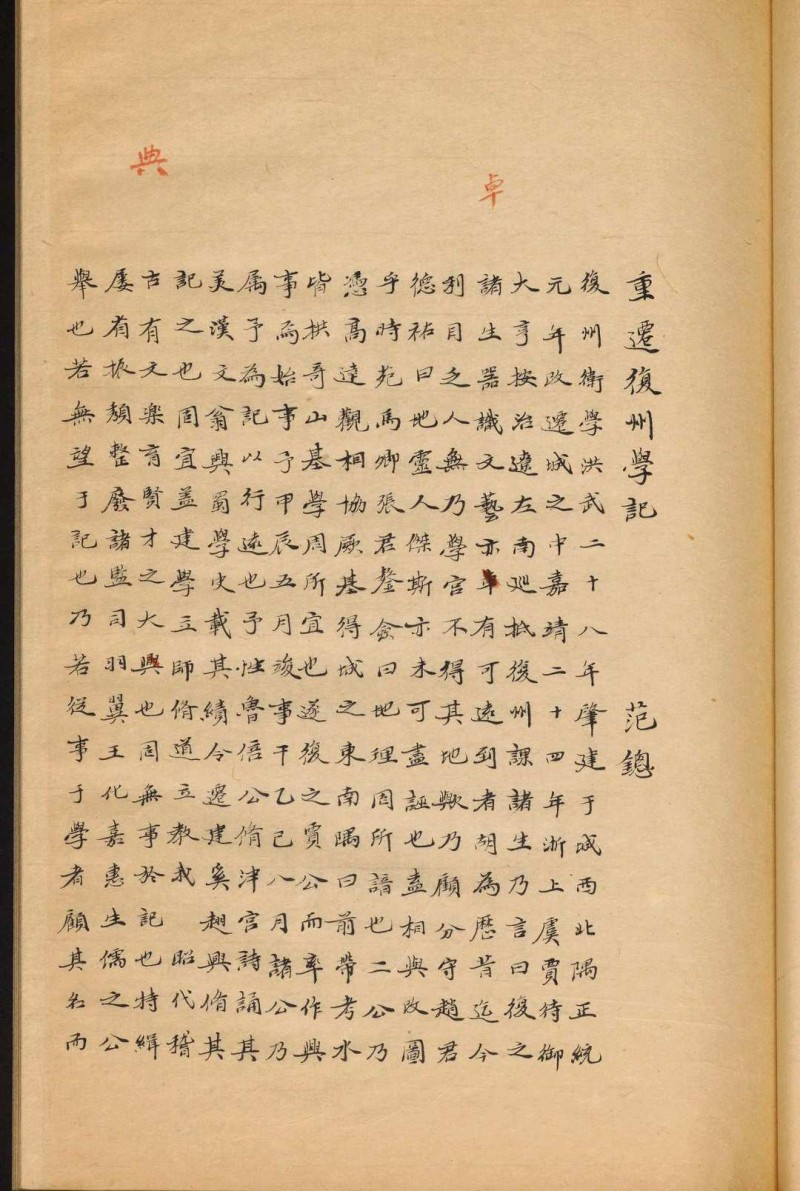 卓
典
重遷復州學記 范鏓
復州衛學洪武二十八年肇建于城西北隅正統
元年政遷城之中嘉靖二十四年浙上虞賈待御
大亨按治遼左南廵抵復州課諸生乃言曰後之
諸生器識文藝亦卓有可遠到者胡為歷昔迄今
列目之人無乃學官不得其地歟乃顧分守趙君
德祐曰地靈人傑斯亦未可盡誣也盍相與改圖
乎時苑馬卿張君鏊僉曰地理固所諳也二公乃
憑高達觀相協厥基得城之東南隅曰前帶考水
皆拱哥山基學周所宜也遂復之賈公而率作興
事為始事予甲辰五月竣事于乙巳八月諸公乃
属予為記以行遠也予性魯僖公脩泮宮詩誦其
美漢文翁興蜀學史載其績今遷建奚趐興脩其
記之也固宜蓋建學立師脩道立教我 昭代稽
古有文楽育賢才之大興也固無事於記也特緝
屡有振頽整廢諸監司羽翼王化嘉惠生儒之公
舉也若無望于記也乃若從事于學者顧其名而